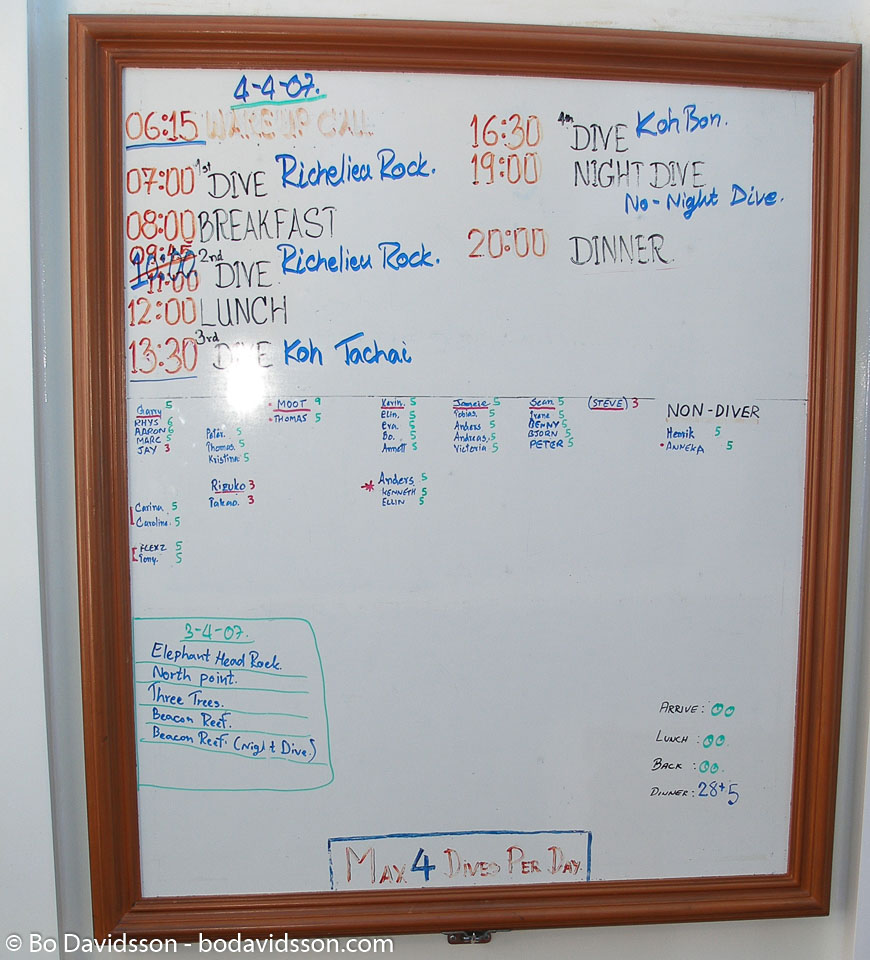 4-4-07.
06:15 WAKE UP CALL
07:00 1st DIVE Richelieu Rock.
08:00 BREAKFAST
09:45
10:00 2nd DIVE Richelieu Rock.
11:00
12:00 LUNCH
13:30 3rd DIVE Koh Tachai
16:30 4th DIVE Koh Bon.
19:00 NIGHT DIVE
No-Night Dive.
20:00 DINNER
Charry 5
RHYS 6
AARON 6
MARC 5
JAY 3
Carina 5
Caroline. 5
FLEXZ 5
Tony. 5
Peter. 5
Thomas. 5
Kristina 5
Rizuko 3
3
MOOT 9
THOMAS 5
Kevin. 5
Elin. 5
Eva. 5
Bo. 5
Annett 5
* Anders 5
KENNETH 5
ELLIN 5
Jameie 5
Tobias. 5
Anders 5
Andreas. 5
Victoria 5
Sean 5
Irene 5
BENNY 5
BJORN 5
PETER 5
(STEVE) 3
NON-DIVER
Henrik 5
ANNEKA 5
3-4-07.
Elephant Head Rock.
North point.
Three Trees.
Beacon Reef.
Beacon Reef. (Night Dive)
ARRIVE: 00
LUNCH : 00
BACK : 00.
DINNER: 28+5
MAX 4 DIVES PER DAY
© Bo Davidsson - bodavidsson.com